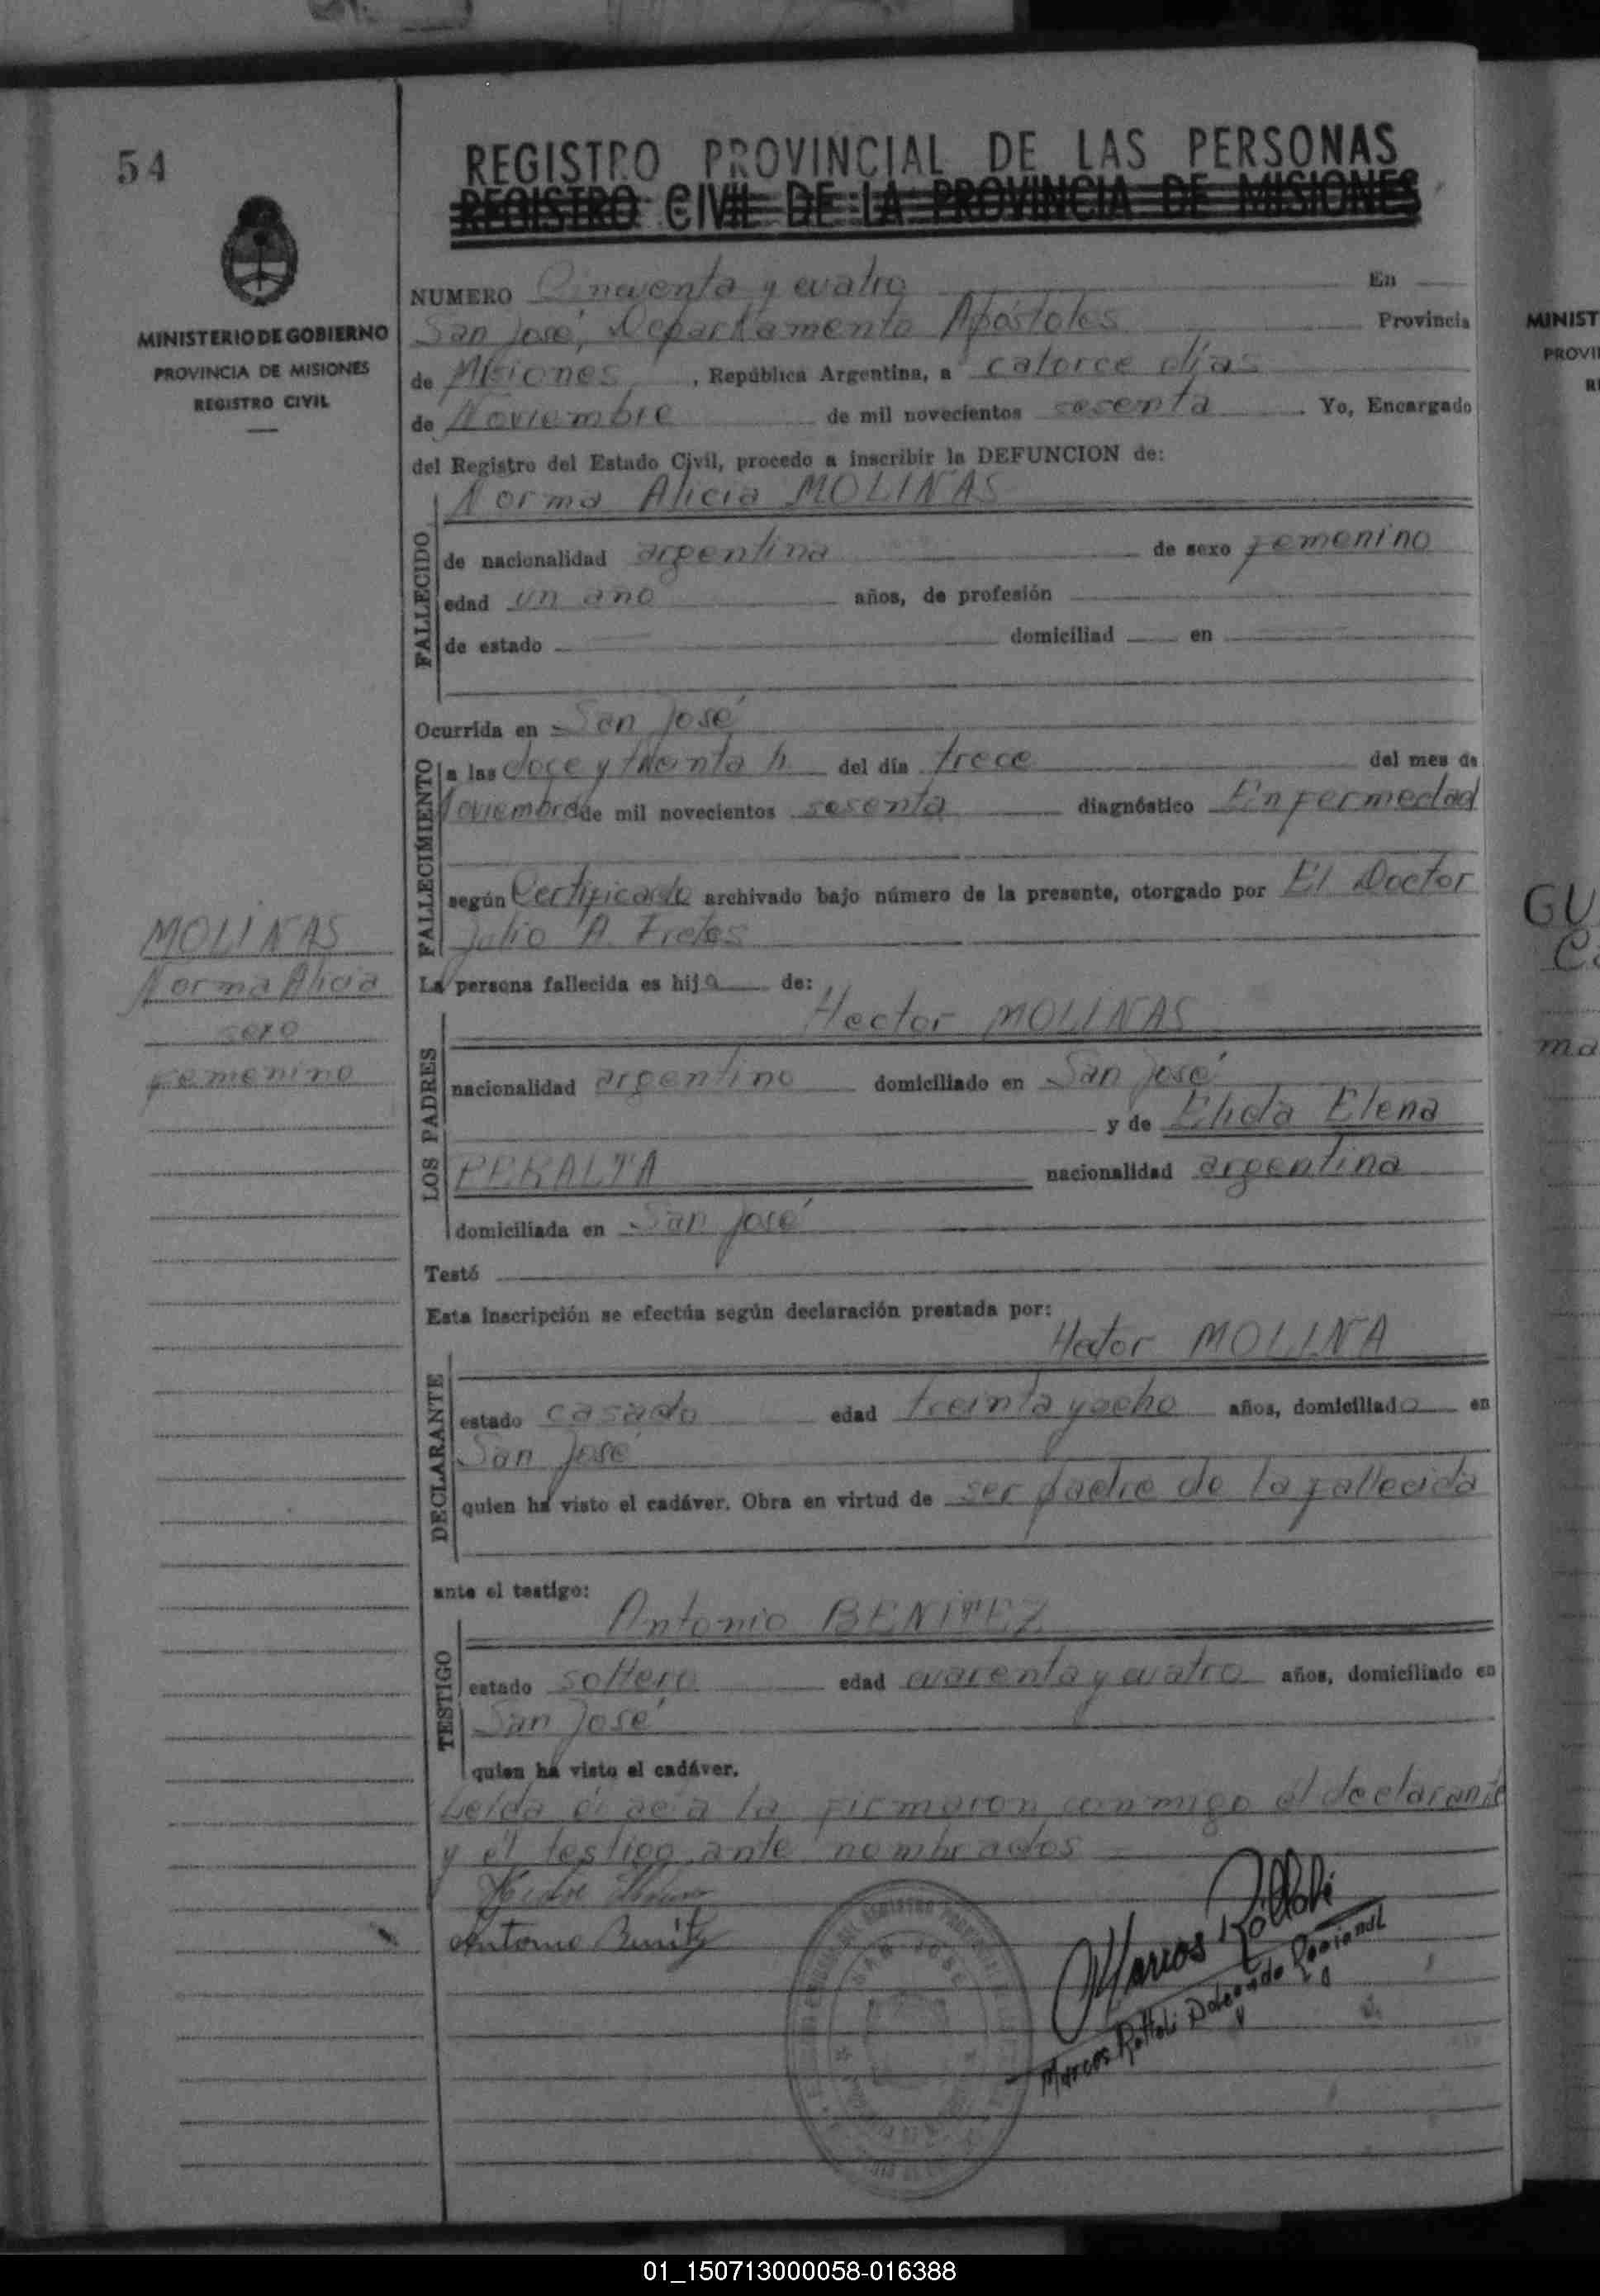 54
REGISTRO PROVINCIAL DE LAS PERSONAS
REGISTRO CIVIL DE LA PROVINCIA DE MISIONES
MINISTERIO DE GOBIERNO
PROVINCIA DE MISIONES
REGISTRO CIVIL
NUMERO Cincuenta y cuatro En
San José, Departamento Apóstoles Provincia
de Misiones, República Argentina, a catorce días
de Noviembre de mil novecientos sesenta. Yo, Encargado
del Registro del Estado Civil, procedo a inscribir la DEFUNCION de:
Norma Alicia MOLINAS
FALLECIDO
de nacionalidad argentina de sexo femenino
edad un año años, de profesión
de estado domiciliad en
Ocurrida en San José
FALLECIMIENTO
a las doce y treinta h. del día trece del mes de
Noviembre de mil novecientos sesenta diagnóstico Enfermedad
según Certificado archivado bajo número de la presente, otorgado por El Doctor
Julio A. Fretes
MOLINAS
Norma Alicia
sexo
femenino
La persona fallecida es hija de:
Hector MOLINAS
LOS PADRES
nacionalidad argentino domiciliado en San José
y de Elida Elena
PERALTA nacionalidad argentina
domiciliada en San José
Testó
Esta inscripción se efectúa según declaración prestada por:
Hector MOLINA
DECLARANTE
estado casado edad treinta y ocho años, domiciliado en
San José
quien ha visto el cadáver. Obra en virtud de ser padre de la fallecida
ante el testigo:
Antonio BENITEZ
TESTIGO
estado soltero edad cuarenta y cuatro años, domiciliado en
San José
quien ha visto el cadáver.
Leída el acta la firmaron conmigo el declarante
y el testigo ante nombrados
Antonio Benitez
SAN JOSE
Marcos Rottoli
Marcos Rottoli Delegado Regional
MINIST
PROVI
R
GU
C
ma
01_150713000058-016388